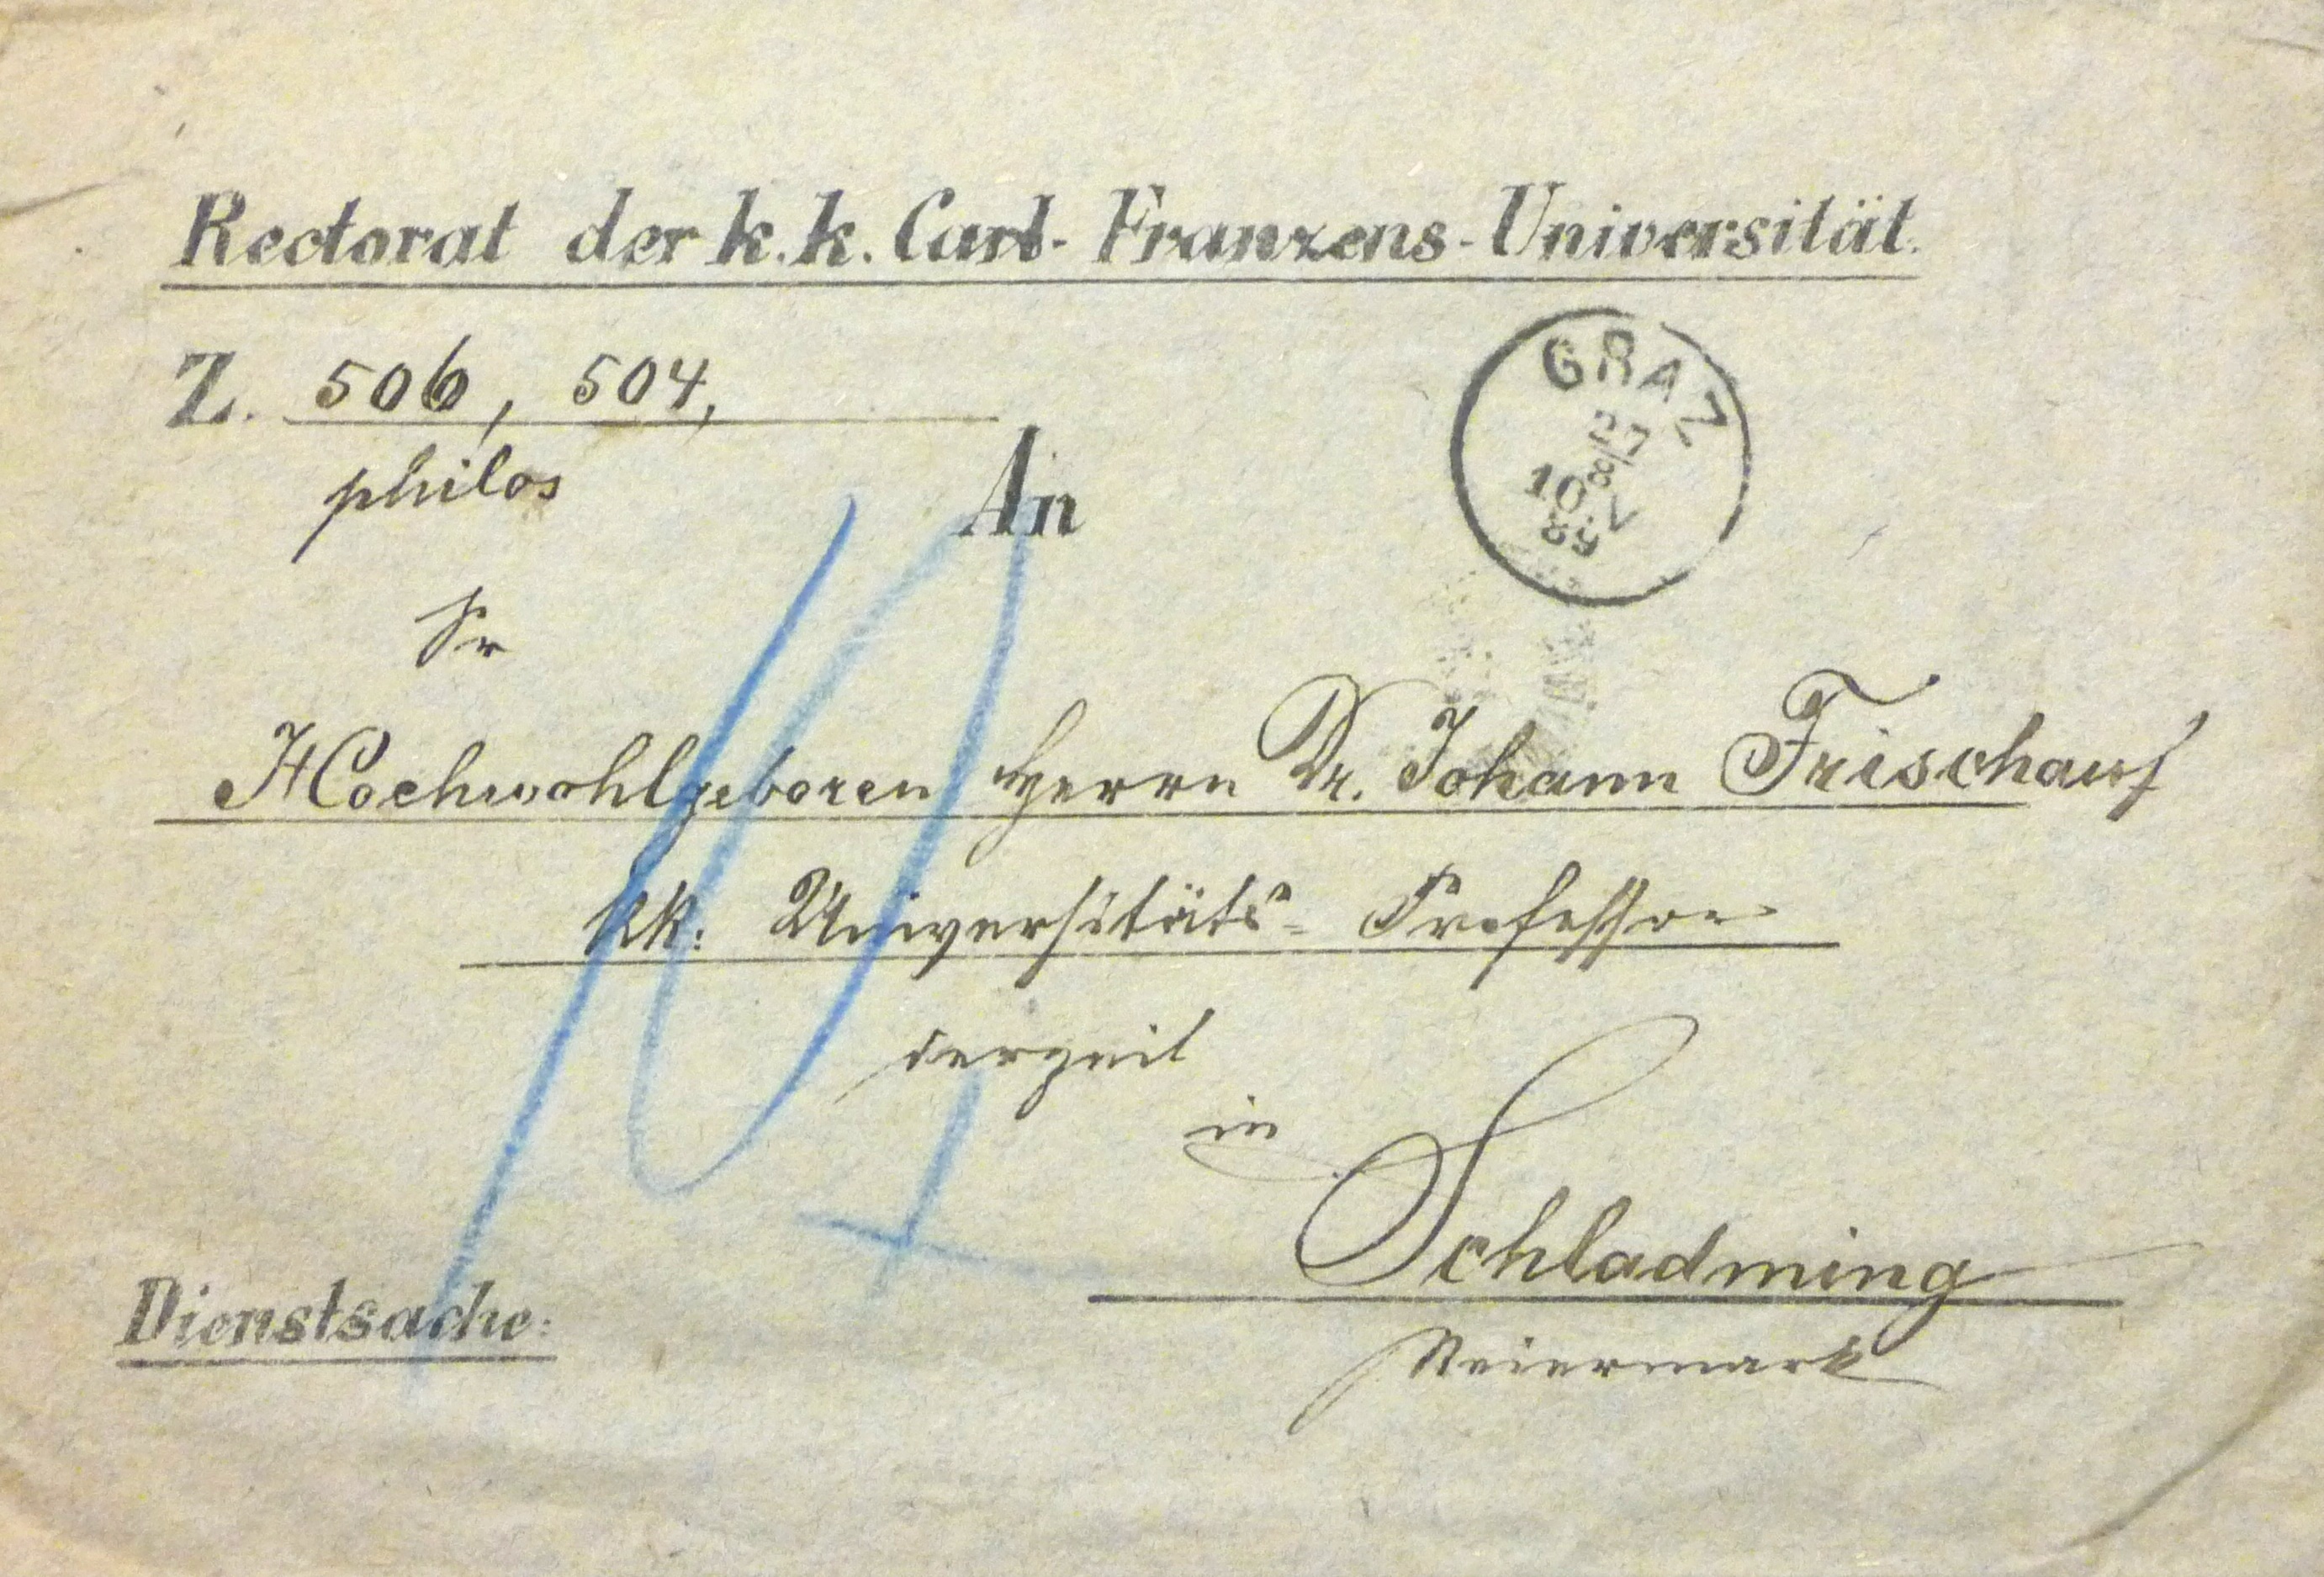 Rectorat der k.k. Carl-Franzens-Universität.
Z. 506, 504,
philos
GRAZ
10
An
Sr
Hochwohlgeboren Herrn Dr. Johann Frischauf
kk: Universitäts-Professor
derzeit
in
Schladming
Steiermark
Dienstsache: